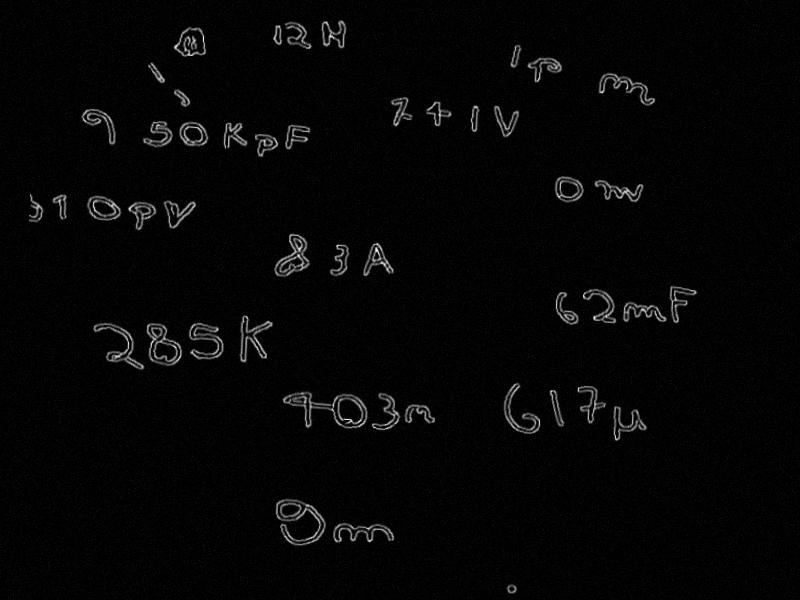 12H
1p m
950KpF
7+1V
0m
10pV
83A
62mF
285K
403m
617μ
9m